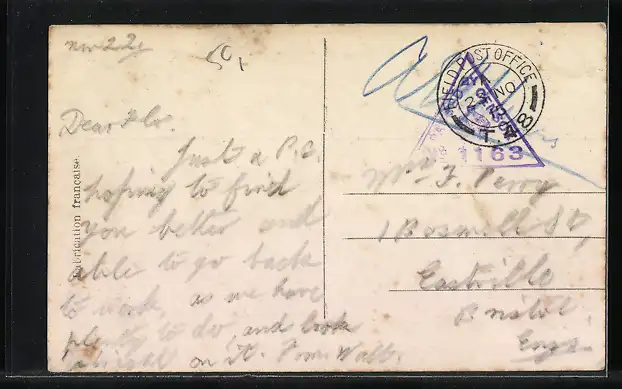 Nov 22
Dear Flo.
Just a P.C.
hoping to find
you better and
able to go back
to work, as we have
plenty to do and look
on it. From Walt.
Fabrication française
FIELD POST OFFICE
NO
T 8
1163
Mrs F. Perry
1 Boswell St,
Eastville
Bristol.
Eng.